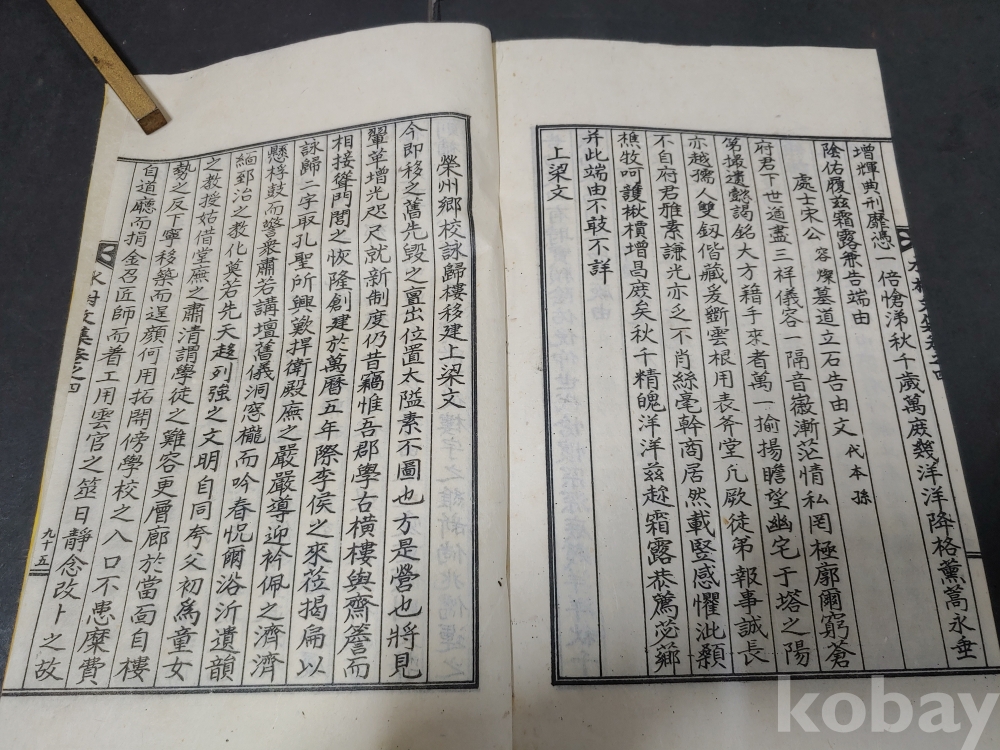 增輝典刑靡憑一倍愴涕秋千歲萬庶幾洋洋降格薰蒿永垂
陰佑履玆霜露兼告端由
處士宋公容燦墓道立石告由文 代本孫
府君下世道盡三祥儀容一隔音徽漸茫情私罔極廓爾窮蒼
第撮遺懿謁銘大方籍手來者萬一揄揚瞻望幽宅于塔之陽
亦越孺人雙釼偕藏爰斲雲根用表斧堂凡厥徒弟報事誠長
不自府君雅素謙光亦之不肖絲毫幹商居然載竪感懼泚顙
樵牧呵護楸檟增昌庶矣秋千精魄洋洋玆趁霜露恭薦苾薌
并此端由不敢不詳
上梁文
榮州鄉校詠歸樓移建上梁文
今即移之舊先毁之亶出位置太隘素不圖也方是營也將見
翬革增光咫尺就新制度仍昔竊惟吾郡學古橫樓與齋簷而
相接聳門閭之恢隆創建於萬曆五年際李侯之來莅揭扁以
詠歸二字取孔聖所興歎捍衛殿廡之嚴嚴導迎衿佩之濟濟
懸桴鼓而警衆肅若講壇舊儀洞窓櫳而吟春怳爾浴沂遺韻
緬郅治之敎化莫若先天趍列強之文明自同夸父初為童女
之敎授姑借堂廡之肅清謂學徒之難容更層廊於當面自樓
勢之反下寧移築而逞顔何用拓開傍學校之入口不患糜費
自道廳而捐金召匠師而着工用雲官之筮日靜念改卜之故
九十五